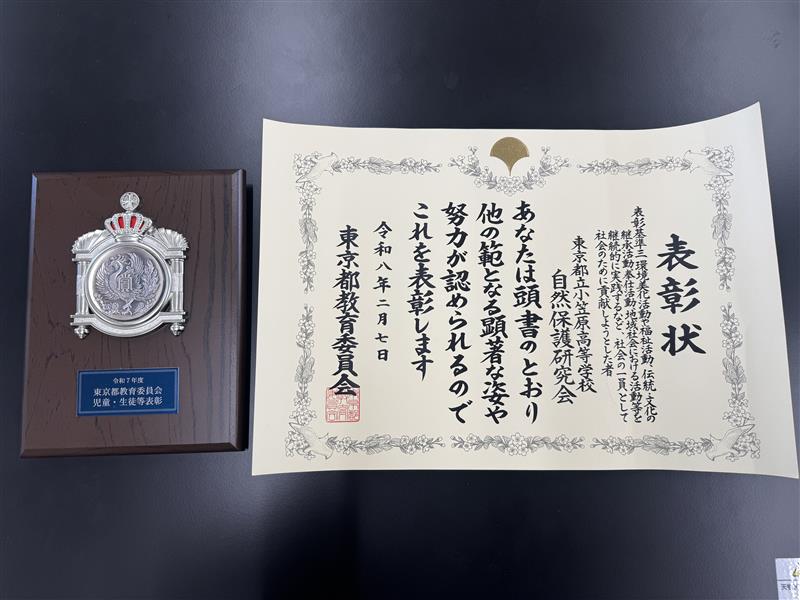 表彰状
表彰基準三 環境美化活動や福祉活動、伝統・文化の
継承活動、奉仕活動、地域社会における活動等を
継続的に実践するなど、社会の一員として
社会のために貢献しようとした者
東京都立小笠原高等学校
自然保護研究会
あなたは頭書のとおり
他の範となる顕著な姿や
努力が認められるので
これを表彰します
令和八年二月七日
東京都教育委員会
賞
令和7年度
東京都教育委員会
児童・生徒等表彰